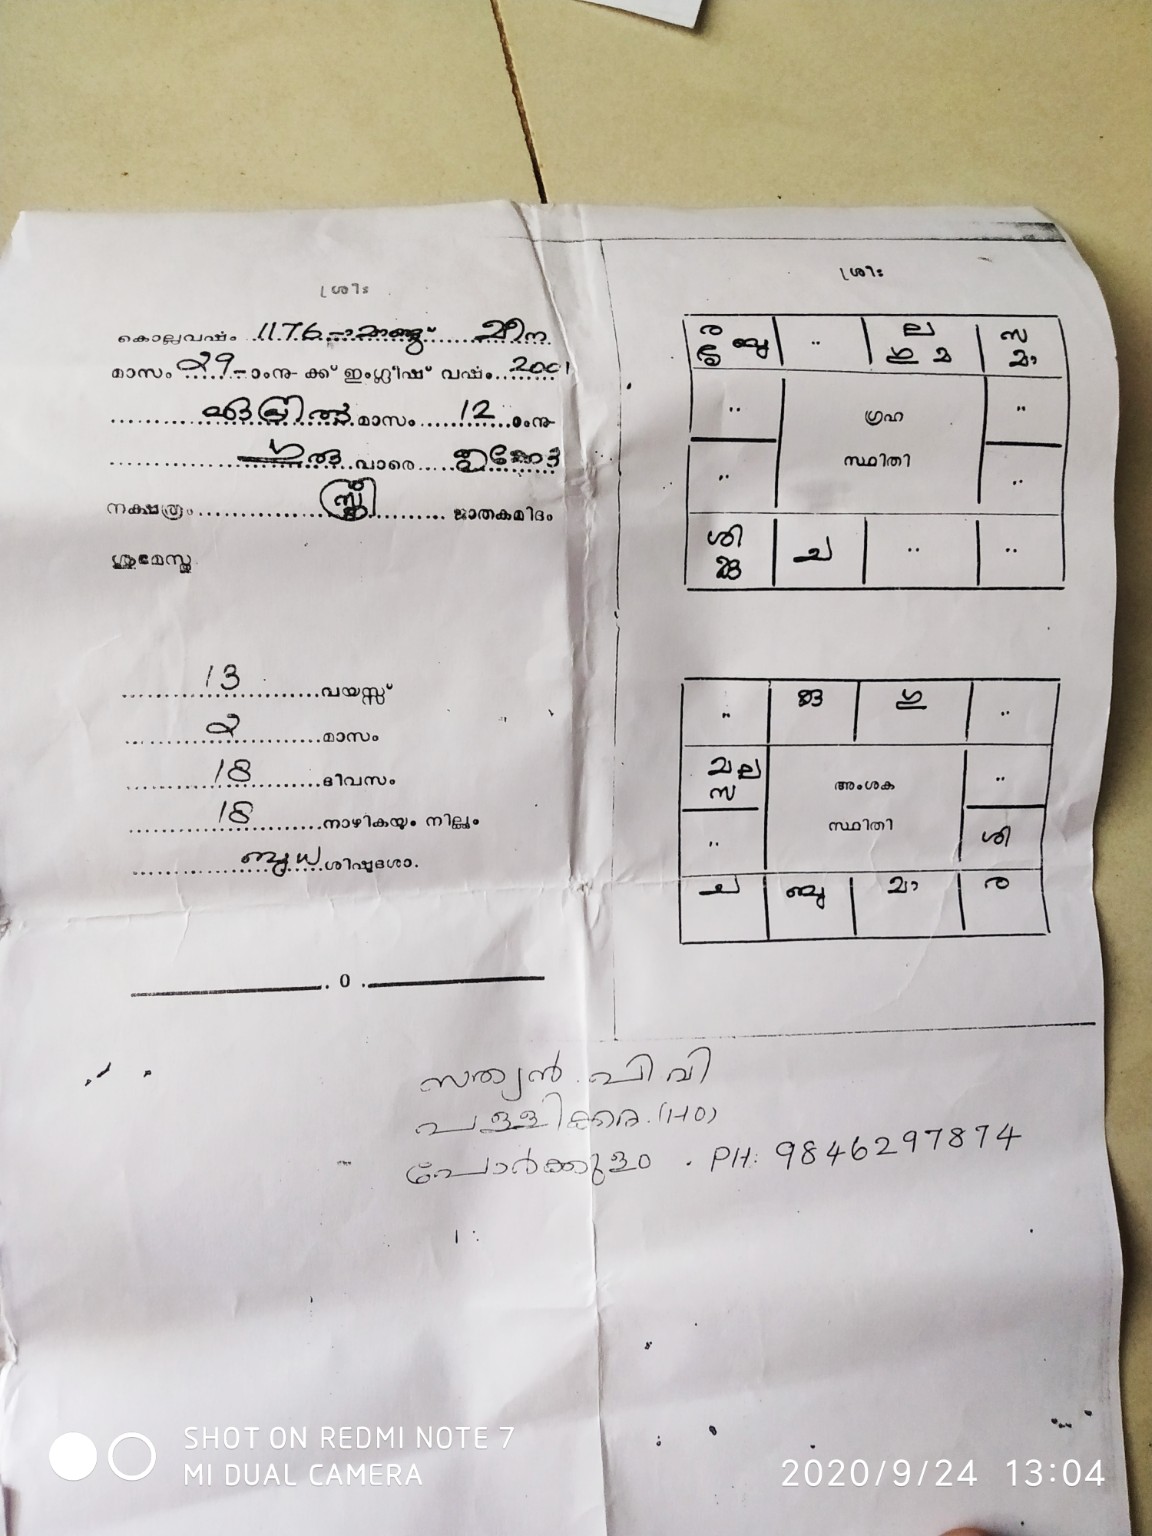 ശ്രീഃ
കൊല്ലവർഷം 1176-ാമാണ്ടു് മീന
മാസം 29-ാംനു- ക്ക് ഇംഗ്ലീഷ് വർഷം 2001
ഏപ്രിൽ മാസം 12 ാംനു-
ഗുരു വാരെ തൃക്കേട്ട
നക്ഷത്രം സ്ത്രീ ജാതകമിദം
ശുഭമസ്തു
13 വയസ്സ്
2 മാസം
18 ദിവസം
18 നാഴികയും നില്പും
ബുധ ശിഷ്ടദശാ.
. 0 .
ശ്രീഃ
ര ബു
ശു
ല
ഗു മ
സ
മാ
ഗ്രഹ
സ്ഥിതി
ശി
കു
ച
കു
ഗു
ല
സ
അംശക
സ്ഥിതി
ശി
ച
ബു
മാ
ര
സത്യൻ പി വി
പള്ളിക്കര (HO)
പോർക്കുളം . PH: 9846297874
SHOT ON REDMI NOTE 7
MI DUAL CAMERA
2020/9/24 13:04